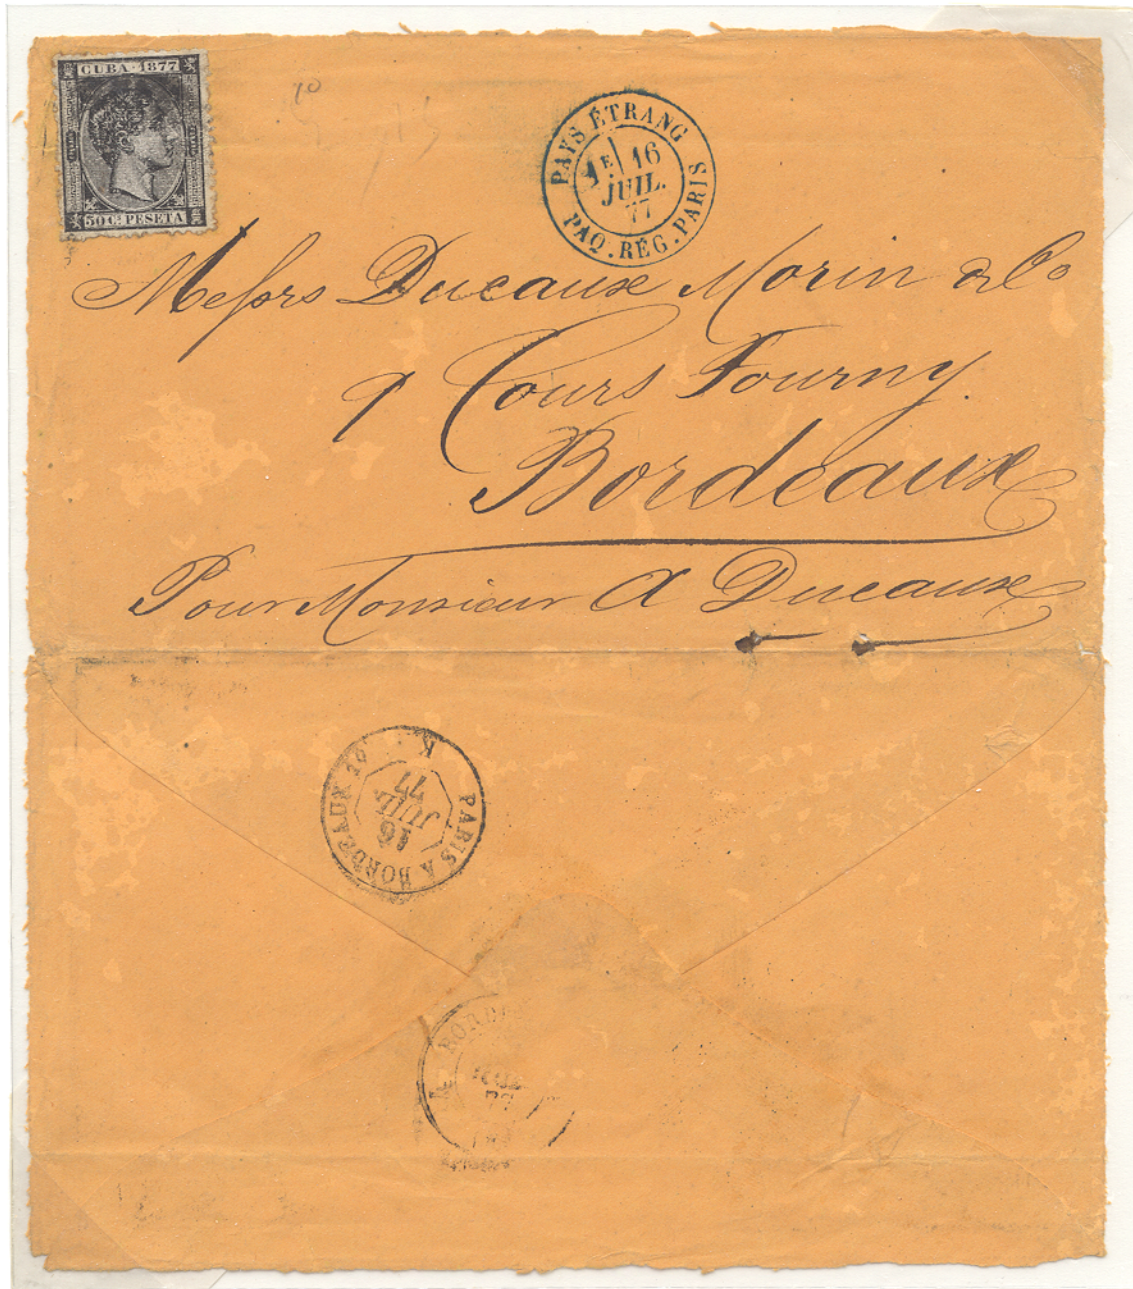 CUBA · 1877
50 C. PESETA
PAYS ÉTRANG
1E/ 16
JUIL.
77
PAQ. RÉG. PARIS
Messrs Ducaux Morin & Co
9 Cours Tourny
Bordeaux
Pour Monsieur A Ducaux
PARIS A BORDEAUX
K
16
JUIL.
77